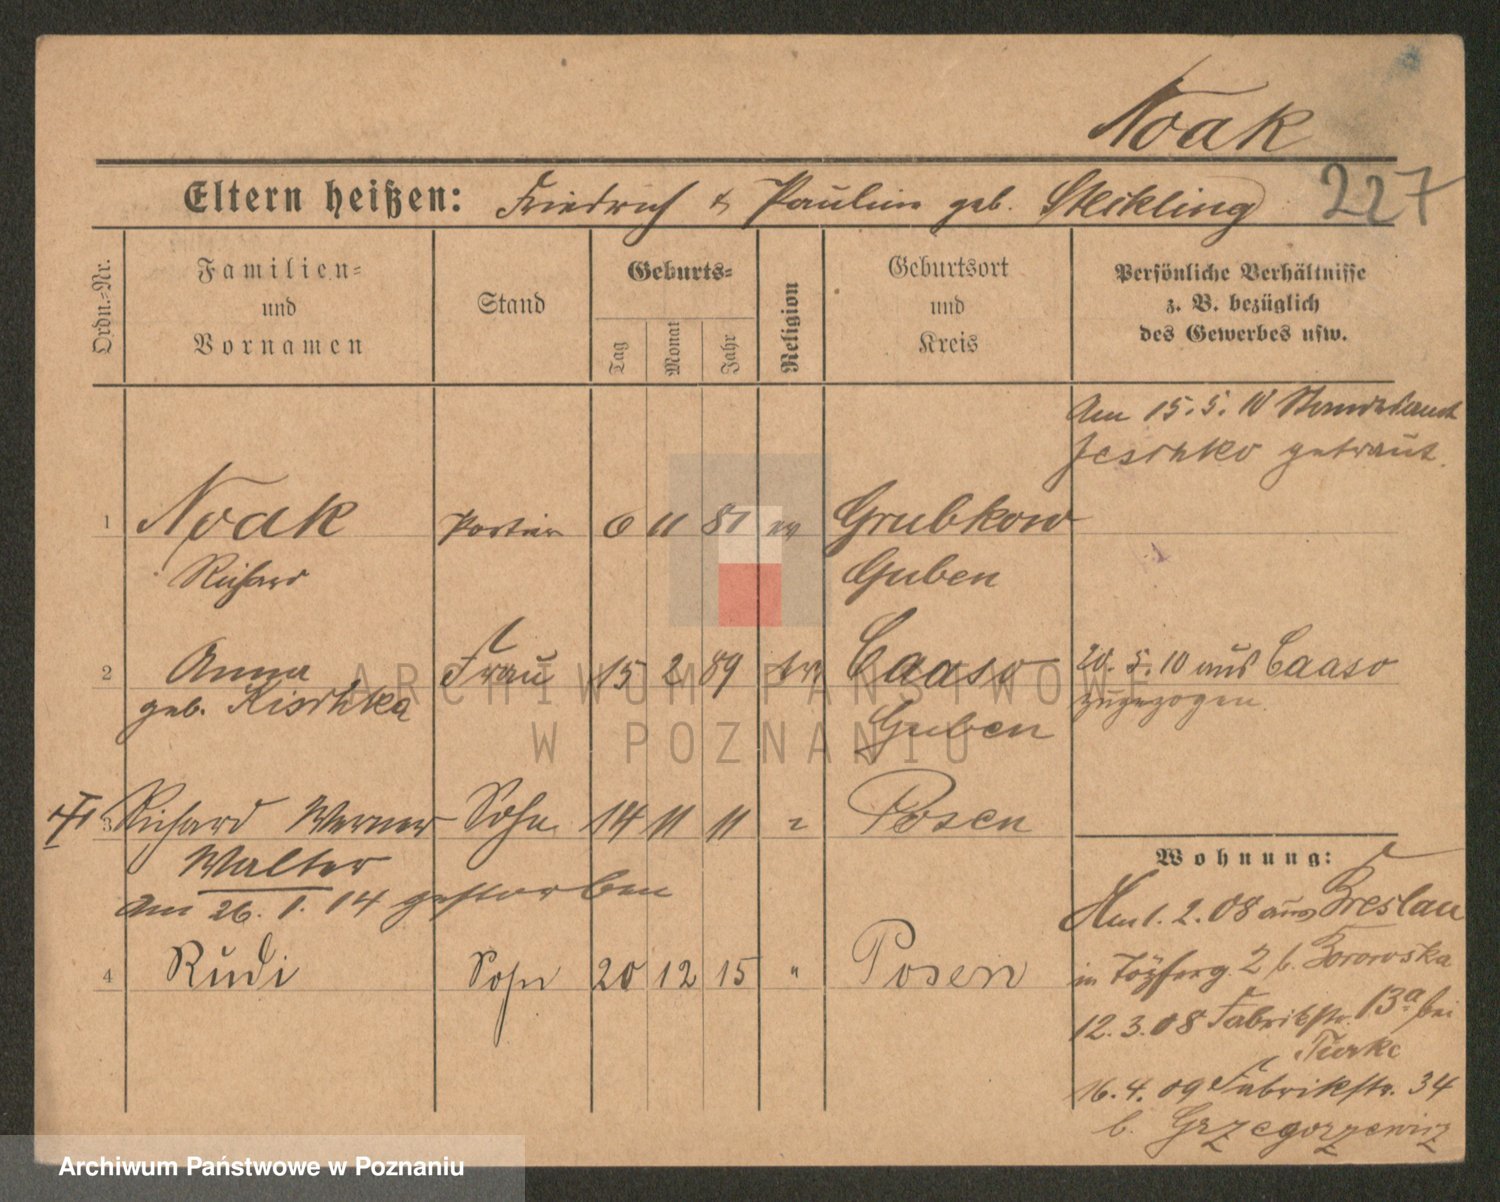 Noak
Eltern heißen: Friedrich & Pauline geb. Steikling
227
Ordn.-Nr.
Familien-
und
Vornamen
Stand
Geburts-
Tag
Monat
Jahr
Religion
Geburtsort
und
Kreis
Persönliche Verhältnisse
z. B. bezüglich
des Gewerbes usw.
Am 15. 5. 10 Standesamt
Jeschko getraut.
1 Noak Portier 6 11 81 ev Grubkow
Richard Guben
2 Anna Frau 15 2 89 ev Caaso
geb. Kischka Guben
20. 5. 10 aus Caaso
zugezogen.
3 Richard Werner Sohn 14 11 11 Posen
Walter
am 26. 1. 14 gestorben
4 Rudi Sohn 20 12 15 " Posen
Wohnung:
Am 1. 2. 08 aus Breslau
in 2 b.
12. 3. 08 Fabrikstr. 13a bei
Turke
16. 4. 09 Fabrikstr. 34
b. Grzegorzewicz
ARCHIWUM PAŃSTWOWE
W POZNANIU
Archiwum Państwowe w Poznaniu